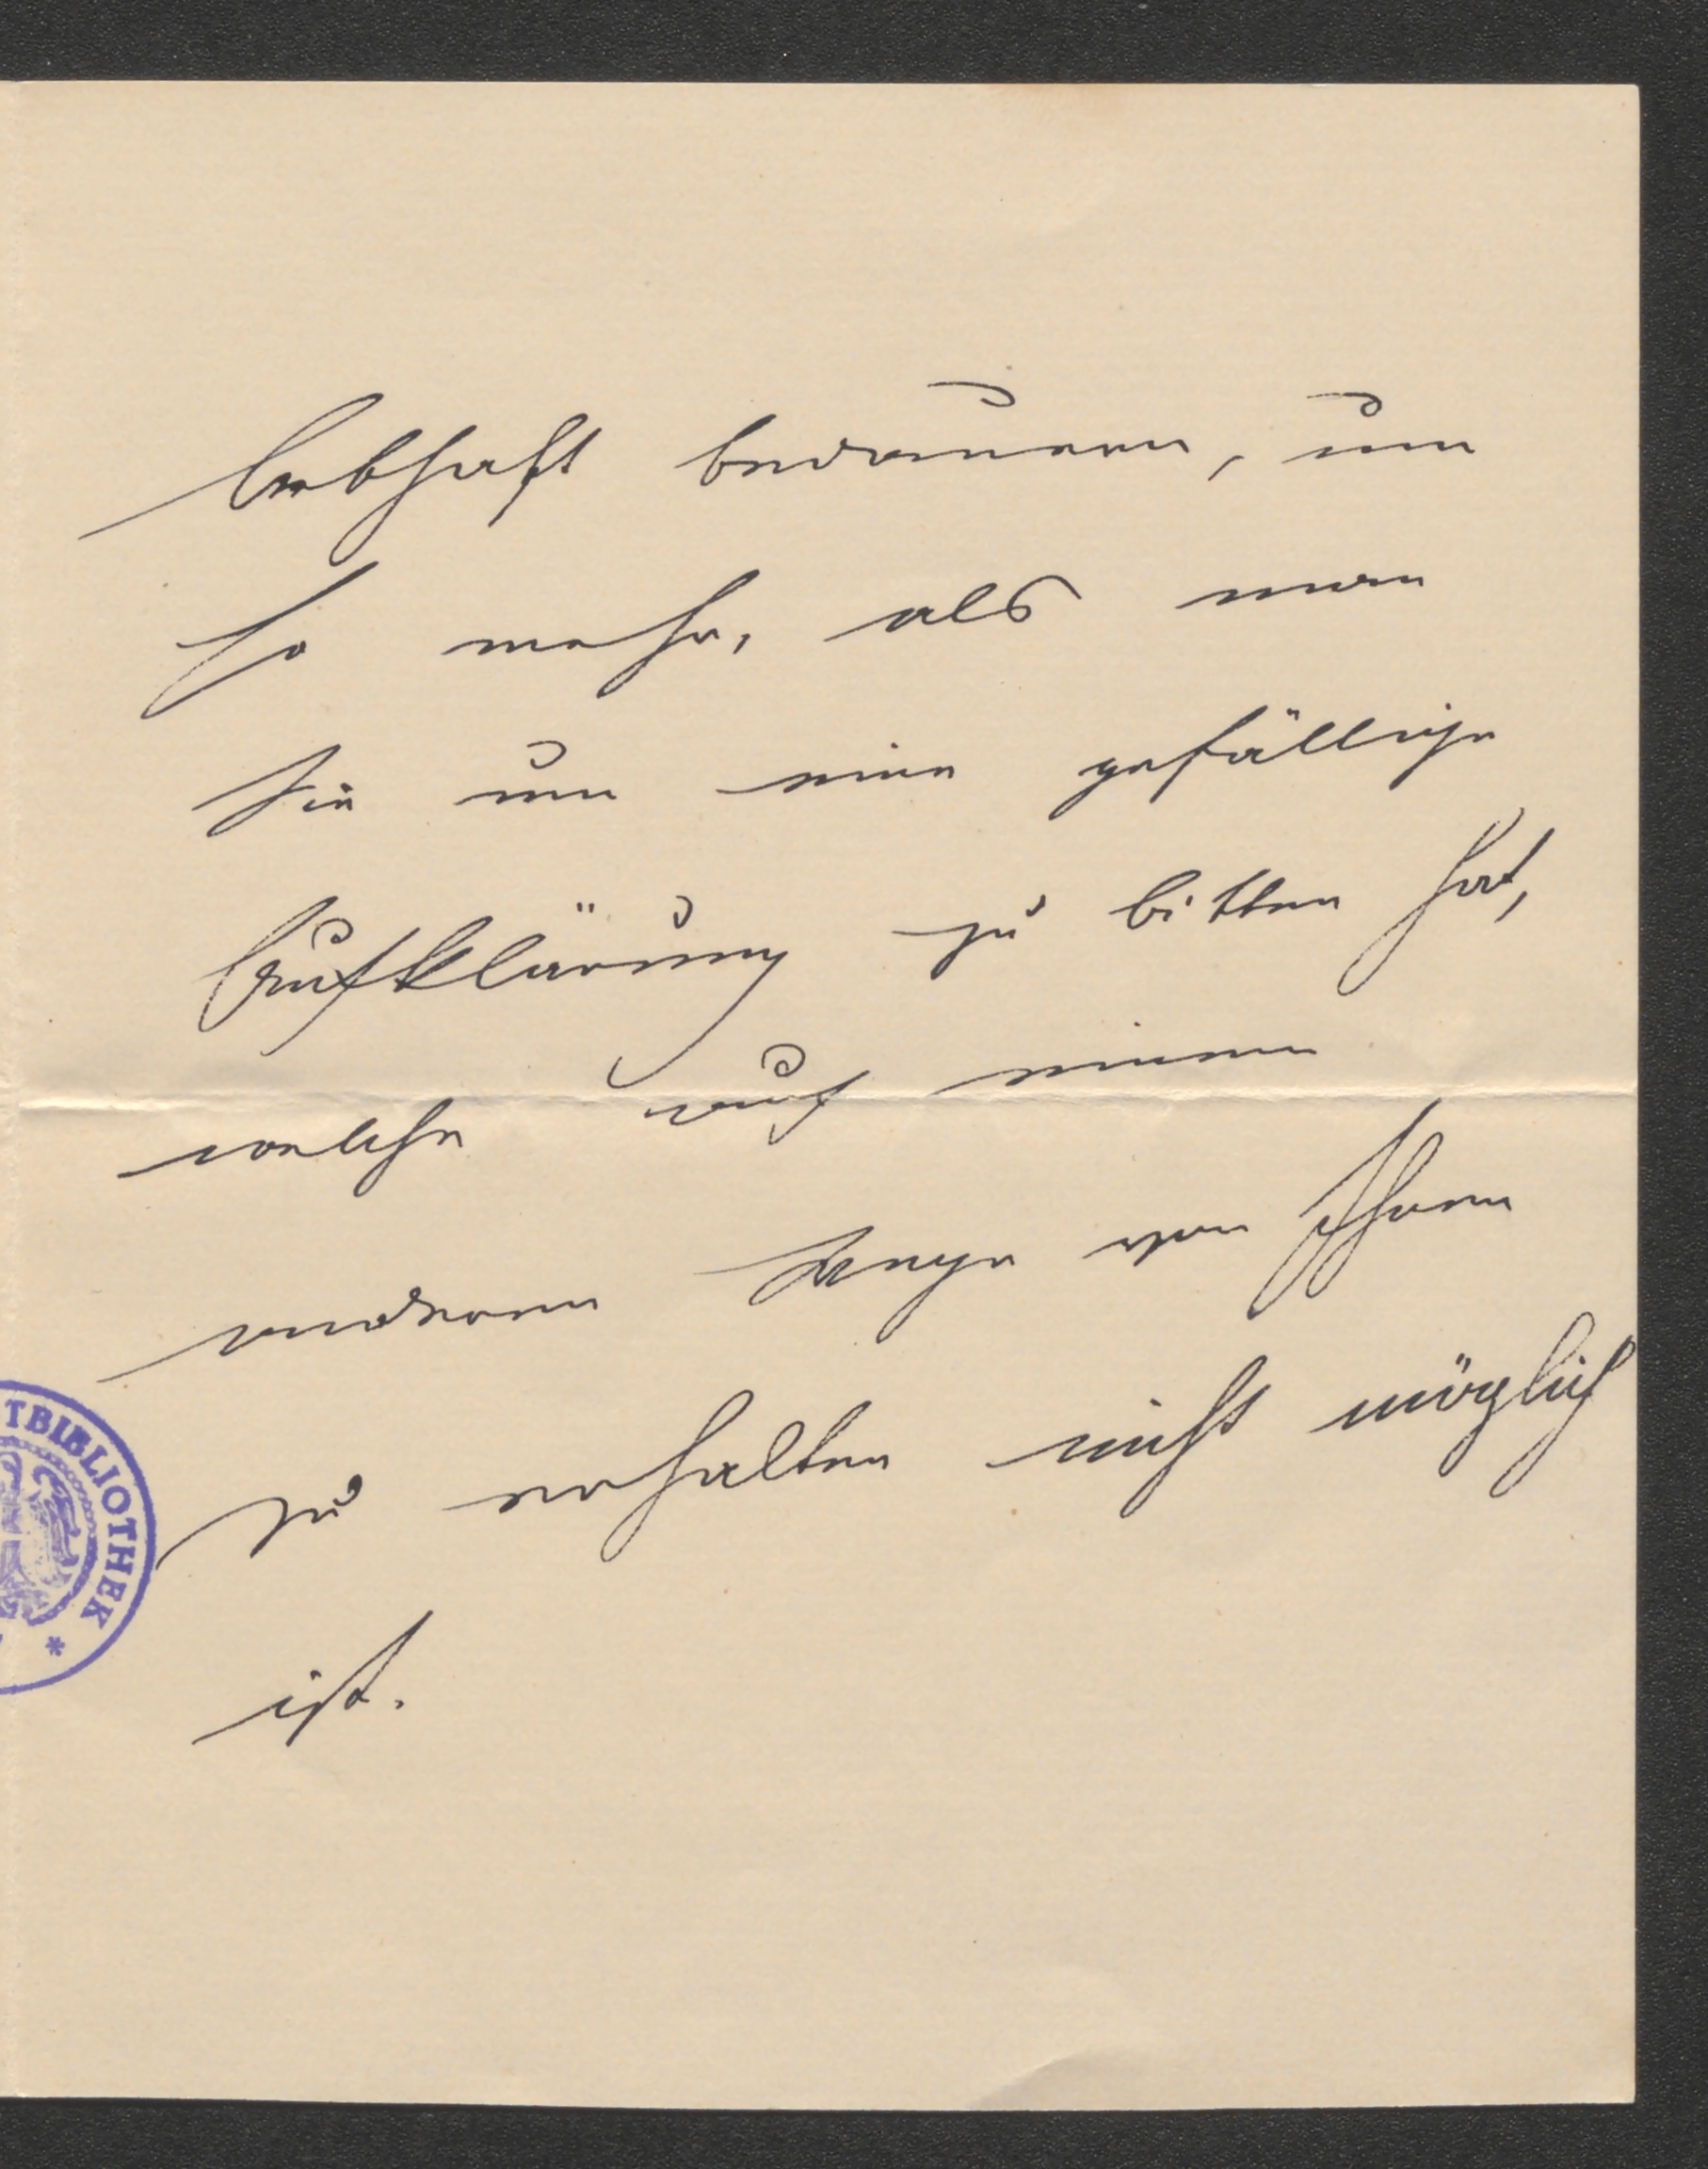 lebhaft bedauern, um
so mehr, als man
Sie um eine gefällige
Aufklärung zu bitten hat,
welche auf einem
anderen Wege von Ihnen
zu erhalten nicht möglich
ist.
TBIBLIOTHEK
*